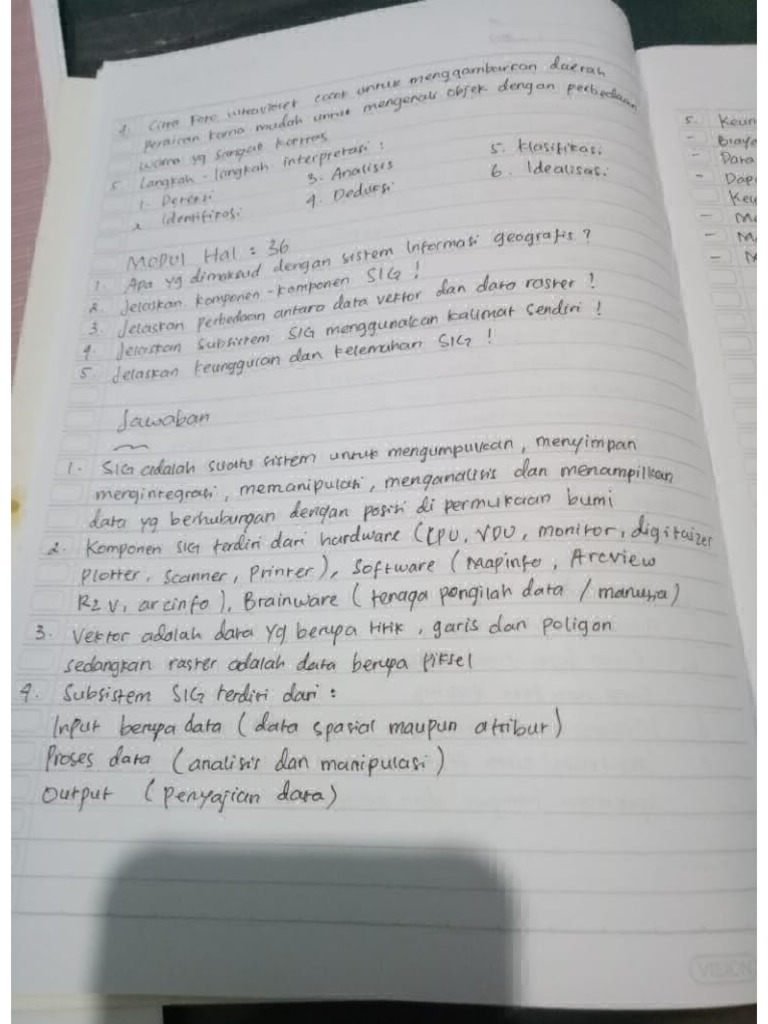 4. Citra Foto ultraviolet cocok untuk menggambarkan daerah
perairan karna mudah untuk mengenali objek dengan perbedaan
warna yg sangat kontras
5. Langkah-langkah interpretasi :
1. Deteksi
2. Identifikasi
3. Analisis
4. Deduksi
5. Klasifikasi
6. Idealisasi
Modul Hal : 36
1. Apa yg dimaksud dengan sistem Informasi geografis ?
2. Jelaskan komponen-komponen SIG !
3. Jelaskan Perbedaan antara data vektor dan data raster !
4. Jelaskan Subsistem SIG menggunakan kalimat sendiri !
5. Jelaskan keunggulan dan kelemahan SIG !
Jawaban
1. SIG adalah suatu sistem untuk mengumpulkan, menyimpan
mengintegrasi, memanipulasi, menganalisis dan menampilkan
data yg berhubungan dengan posisi di permukaan bumi
2. Komponen SIG terdiri dari hardware (CPU, VDU, monitor, digitaizer
Plotter, Scanner, Printer), Software (Mapinfo, Arcview
R2V, arcinfo), Brainware (tenaga pengilah data / manusia)
3. Vektor adalah data yg berupa titik, garis dan poligon
sedangkan raster adalah data berupa piksel
4. Subsistem SIG terdiri dari :
Input berupa data (data spasial maupun atribut)
Proses data (analisis dan manipulasi)
Output (Penyajian data)
VISION
5. Keun
- Biaya
- Data
- Dap
Keu
- M
- M